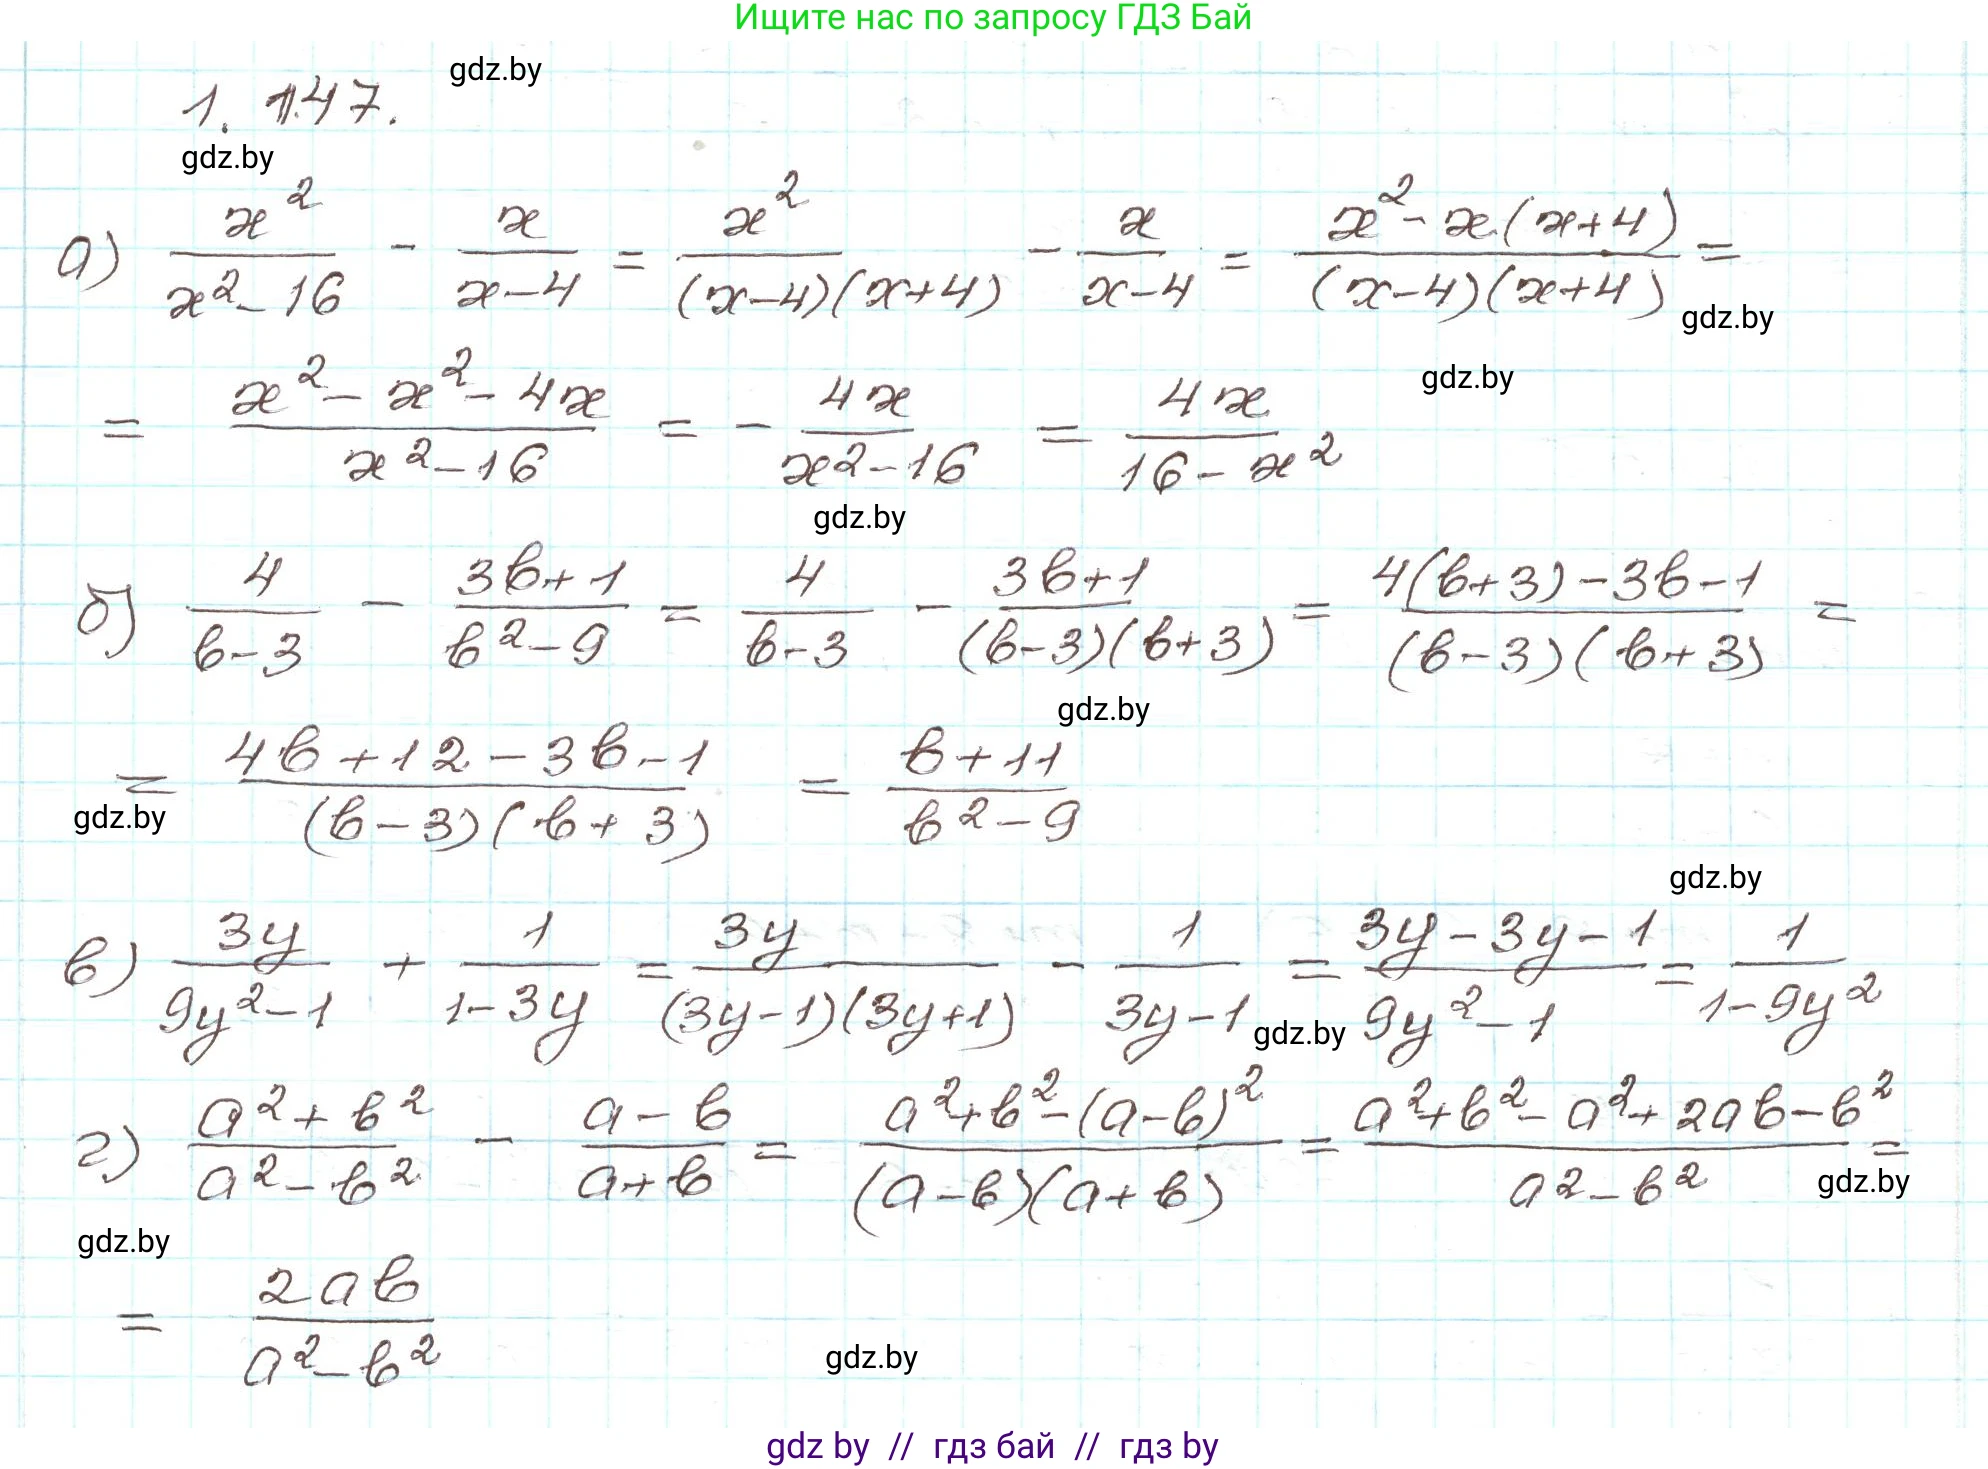 Ищите нас по запросу ГДЗ Бай
gdz.by
1.147.
gdz.by
а) x²/(x²-16) - x/(x-4) = x²/((x-4)(x+4)) - x/(x-4) = (x²-x(x+4))/((x-4)(x+4)) =
gdz.by
= (x²-x²-4x)/(x²-16) = - 4x/(x²-16) = 4x/(16-x²)
gdz.by
gdz.by
б) 4/(b-3) - (3b+1)/(b²-9) = 4/(b-3) - (3b+1)/((b-3)(b+3)) = (4(b+3)-3b-1)/((b-3)(b+3)) =
gdz.by
= (4b+12-3b-1)/((b-3)(b+3)) = (b+11)/(b²-9)
gdz.by
gdz.by
в) 3y/(9y²-1) + 1/(1-3y) = 3y/((3y-1)(3y+1)) - 1/(3y-1) = (3y-3y-1)/(9y²-1) = 1/(1-9y²)
gdz.by
г) (a²+b²)/(a²-b²) - (a-b)/(a+b) = (a²+b²-(a-b)²)/((a-b)(a+b)) = (a²+b²-a²+2ab-b²)/(a²-b²) =
gdz.by
gdz.by
= 2ab/(a²-b²)
gdz.by
gdz by // гдз бай // гдз by